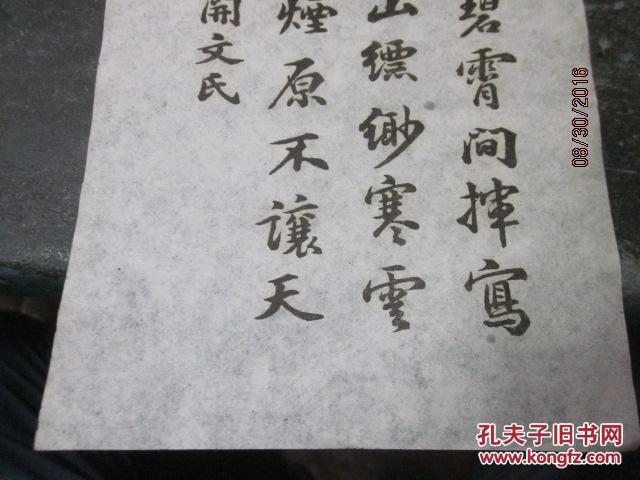 碧霄間揮寫
山縹緲寒雲
煙原不讓天
開文氏
08/30/2016
孔夫子旧书网
www.kongfz.com